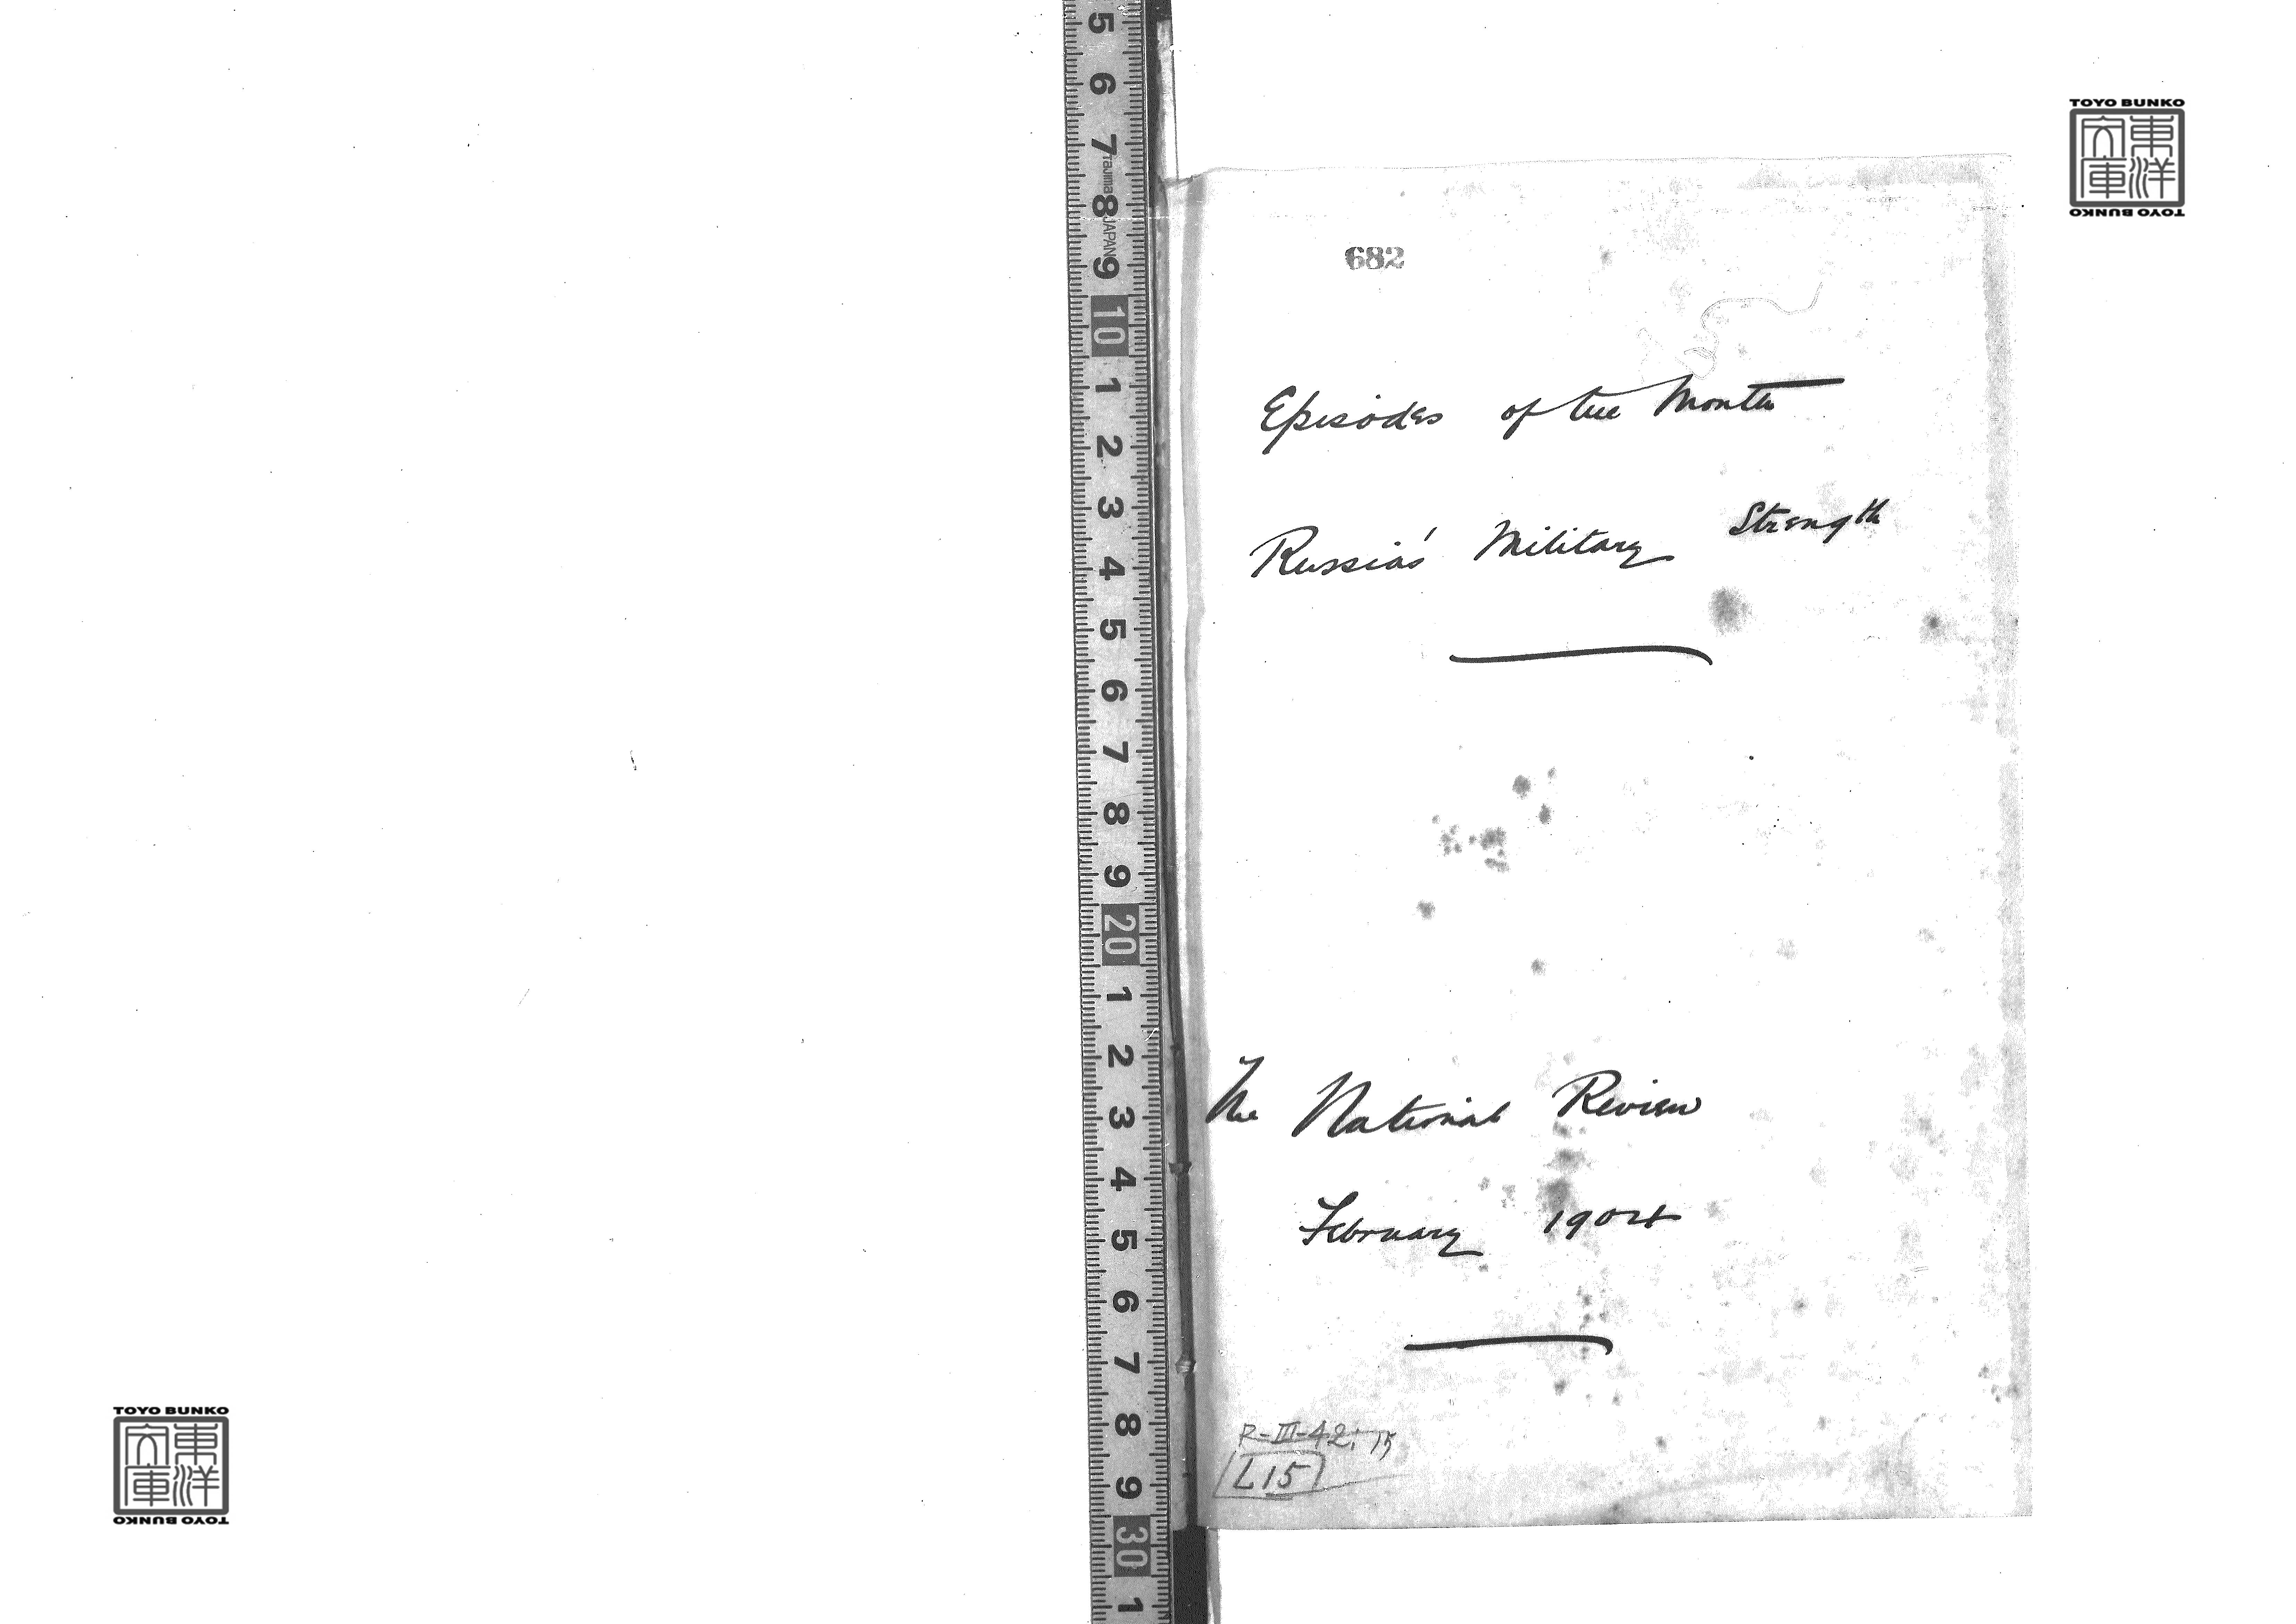 TOYO BUNKO
東洋
文庫
TOYO BUNKO
682
Episodes of the Month
Russia's Military Strength
The National Review
February 1904
R-III-42,
L15
5
6
7
Tajima
8
JAPAN
9
10
1
2
3
4
5
6
7
8
9
20
1
2
3
4
5
6
7
8
9
30
1
TOYO BUNKO
東洋
文庫
TOYO BUNKO